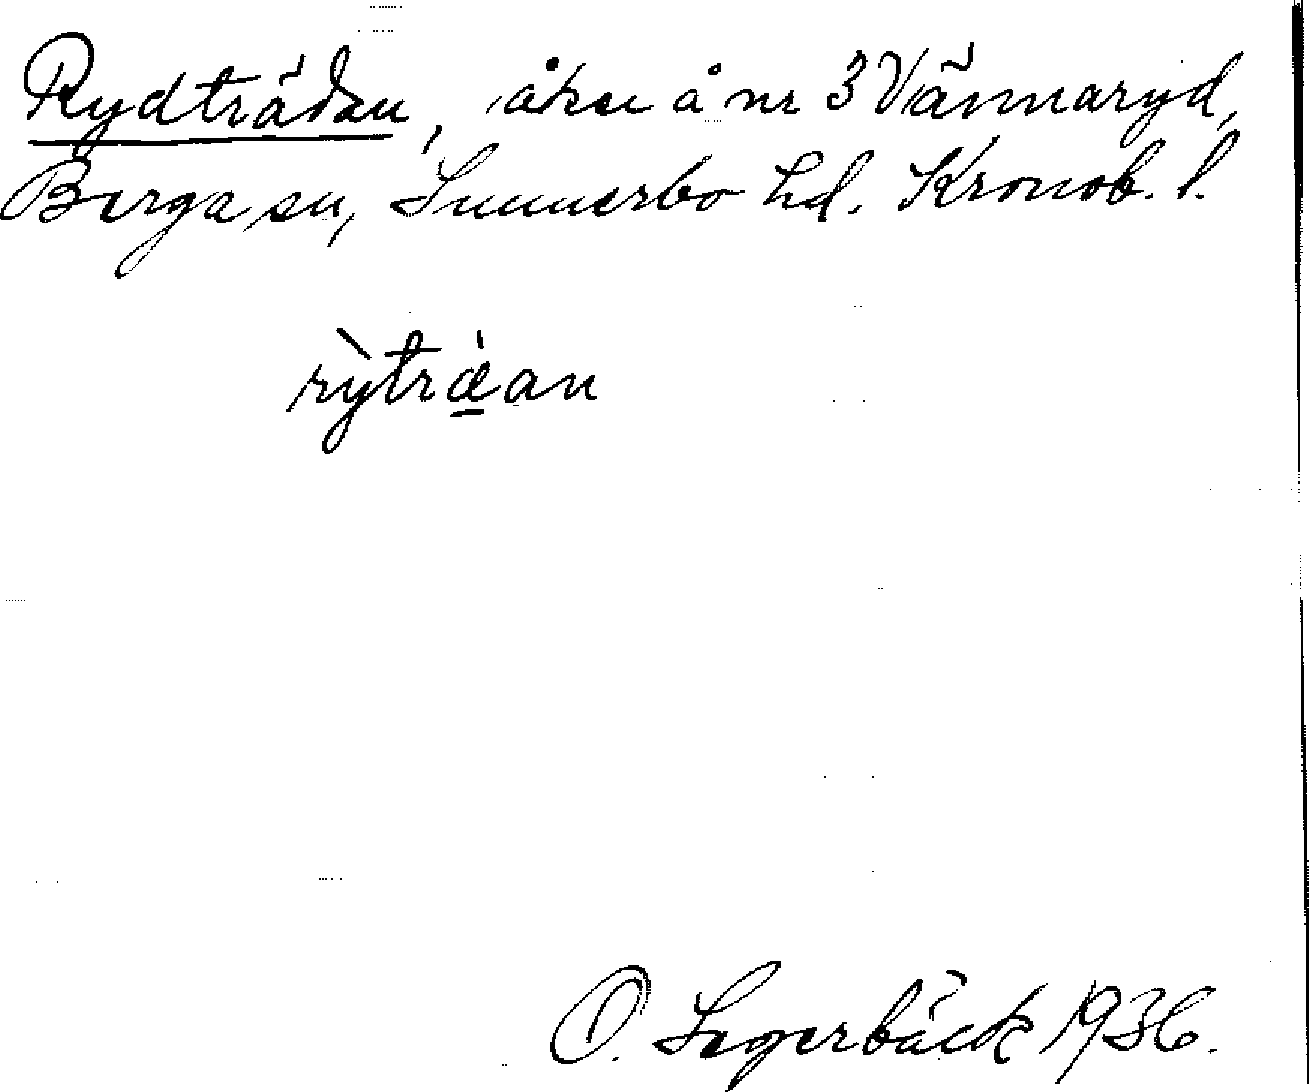 Rydträdan, åker å nr 3 Vännaryd,
Berga sn, Sunnerbo hd. Kronob. l.
rỳtræ̀an
O. Segerbäck 1936.